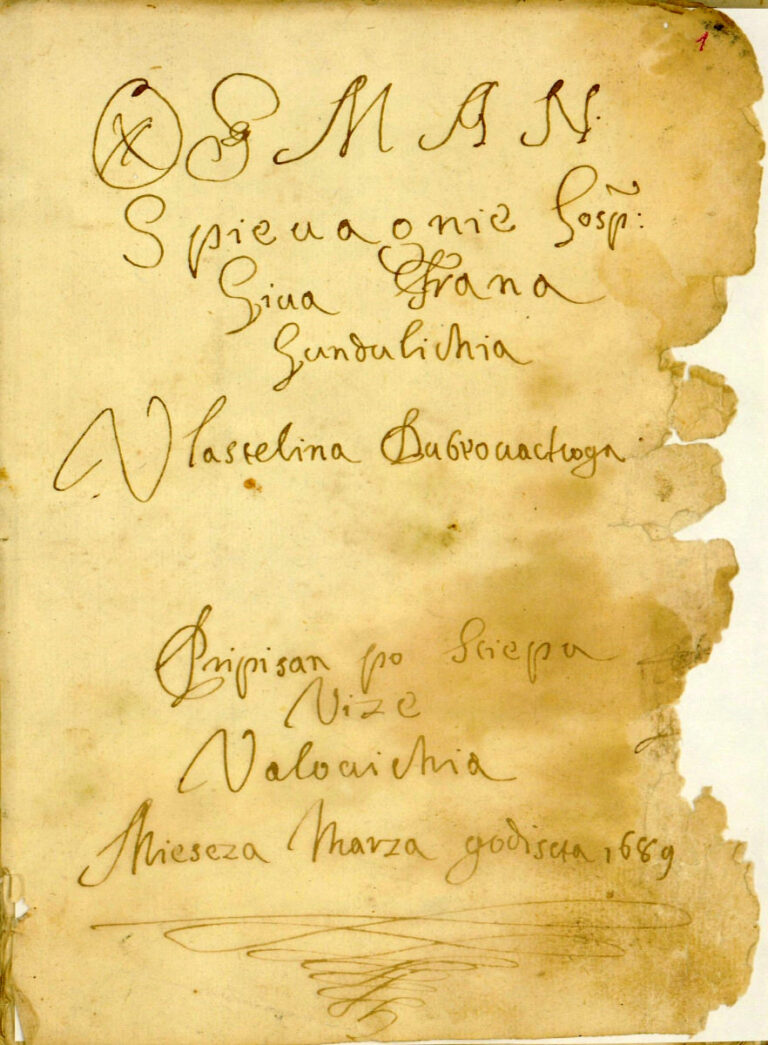 1
OSMAN
Spievagnie Gosp:
Giva Frana
Gundulichia
Vlastelina Dubrovactoga
Pripisan po Stiepu
Vize
Valovichia
Mieseza Marza godiscta 1689